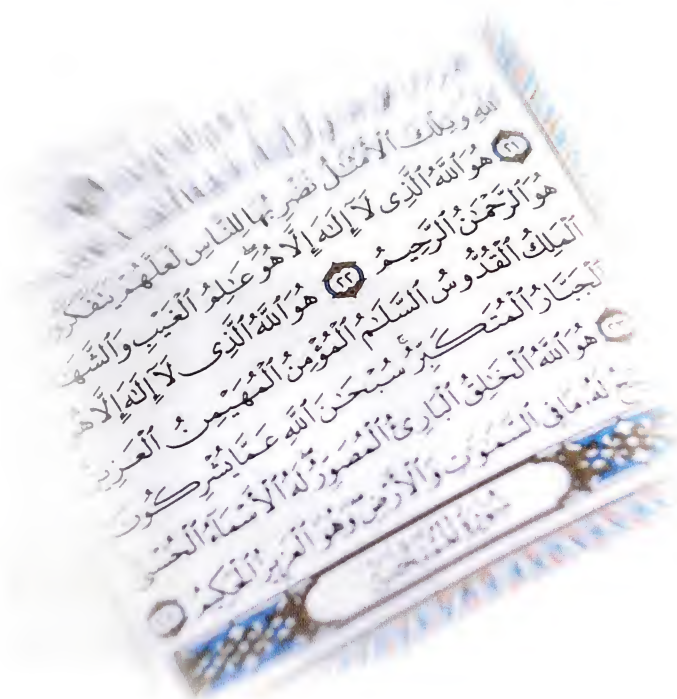 ٱللَّهِ وَتِلْكَ ٱلْأَمْثَٰلُ نَضْرِبُهَا لِلنَّاسِ لَعَلَّهُمْ يَتَفَكَّرُو
٢١ هُوَ ٱللَّهُ ٱلَّذِى لَآ إِلَٰهَ إِلَّا هُوَۖ عَٰلِمُ ٱلْغَيْبِ وَٱلشَّهَ
هُوَ ٱلرَّحْمَٰنُ ٱلرَّحِيمُ ٢٢ هُوَ ٱللَّهُ ٱلَّذِى لَآ إِلَٰهَ إِلَّا هُ
ٱلْمَلِكُ ٱلْقُدُّوسُ ٱلسَّلَٰمُ ٱلْمُؤْمِنُ ٱلْمُهَيْمِنُ ٱلْعَزِي
ٱلْجَبَّارُ ٱلْمُتَكَبِّرُۚ سُبْحَٰنَ ٱللَّهِ عَمَّا يُشْرِكُونَ
٢٣ هُوَ ٱللَّهُ ٱلْخَٰلِقُ ٱلْبَارِئُ ٱلْمُصَوِّرُۖ لَهُ ٱلْأَسْمَآءُ ٱلْحُسْنَ
حُ لَهُۥ مَا فِى ٱلسَّمَٰوَٰتِ وَٱلْأَرْضِۖ وَهُوَ ٱلْعَزِيزُ ٱلْحَكِيمُ